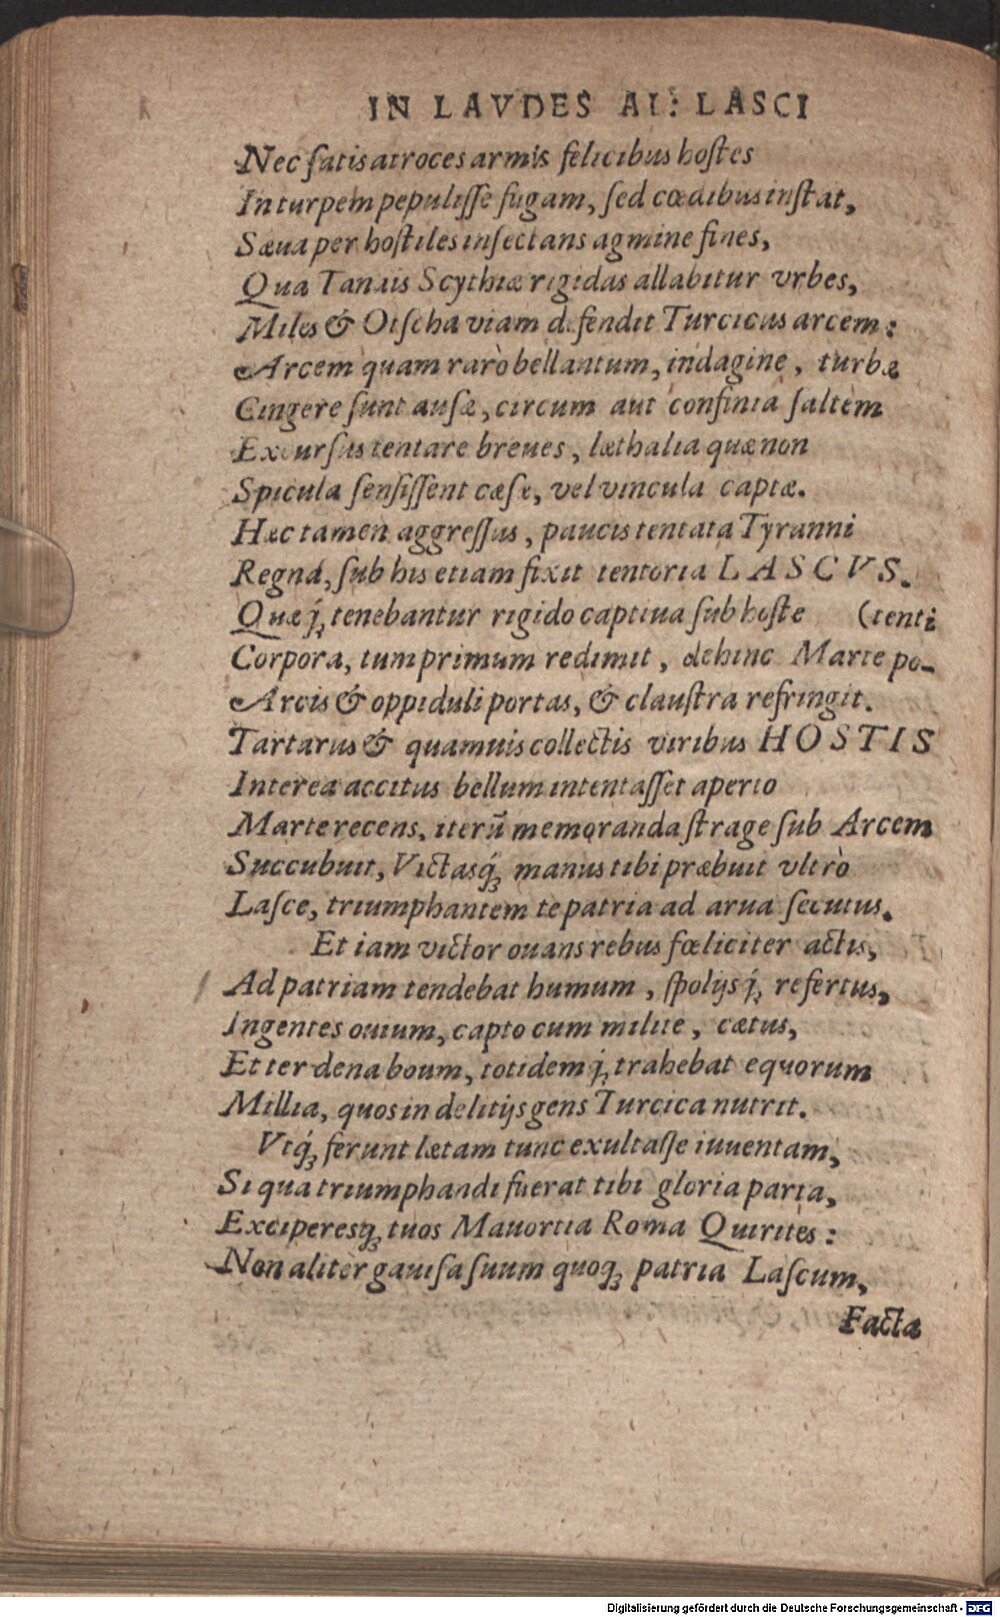 IN LAVDES AL: LASCI
Nec ſatis atroces armis felicibus hoſtes
In turpem pepuliſſe fugam, ſed cœdibus inſtat,
Sæua per hoſtiles inſectans agmine fines,
Qua Tanais Scythiæ rigidas allabitur vrbes,
Miles & Otſchaviam defendit Turcicus arcem:
Arcem quam rarò bellantum, indagine, turbæ
Cingere ſunt auſæ, circum aut confinia ſaltem
Excurſus tentare breues, læthalia quæ non
Spicula ſenſiſſent cæſæ, vel vincula captæ.
Hæc tamen aggreſſus, paucis tentata Tyranni
Regna, ſub his etiam fixit tentoria LASCVS.
Quæq́; tenebantur rigido captiua ſub hoſte (tenti
Corpora, tum primum redimit, dehinc Marte po-
Arcis & oppiduli portas, & clauſtra refringit.
Tartarus & quamuis collectis viribus HOSTIS
Interea accitus bellum intentaſſet aperto
Marte recens, iterũ memoranda ſtrage ſub Arcem
Succubuit, Victasq́; manus tibi præbuit vltrò
Laſce, triumphantem te patria ad arua ſecutus.
Et iam victor ouans rebus fœliciter actis,
Ad patriam tendebat humum, ſpolijsq́; refertus,
Ingentes ouium, capto cum milite, cætus,
Et ter dena boum, totidemq́; trahebat equorum
Millia, quos in delitijs gens Turcica nutrit.
Vtq́; ferunt lætam tunc exultaſſe iuuentam,
Si qua triumphandi fuerat tibi gloria parta,
Exciperesq; tuos Mauortia Roma Quirites:
Non aliter gauiſa ſuum quoq; patria Laſcum,
Facta
Digitalisierung gefördert durch die Deutsche Forschungsgemeinschaft - DFG